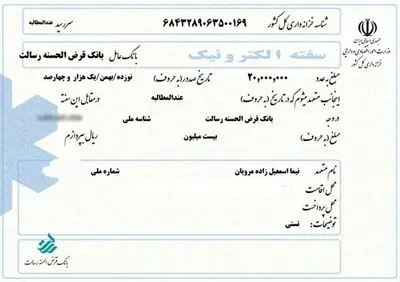 جمهوری اسلامی ایران
وزارت امور اقتصادی و دارایی
خزانه داری کل کشور
شناسه خزانه داری کل کشور ۶۸۴۳۲۸۹۰۶۳۵۰۰۱۶۹
سررسید: عندالمطالبه
سفته الکترونیک
بانک عامل: بانک قرض الحسنه رسالت
مبلغ به عدد ۲۰,۰۰۰,۰۰۰ تاریخ صدور (به حروف) نوزده/بهمن/یک هزار و چهارصد
اینجانب متعهد میشوم که در تاریخ (به حروف) عندالمطالبه در مقابل این سفته
در وجه بانک قرض الحسنه رسالت شناسه ملی
مبلغ (به حروف) بیست میلیون ریال بپردازم
نام متعهد نیما اسمعیل زاده مرویان شماره ملی
محل اقامت
محل پرداخت
توضیحات: تستی
بانک قرض الحسنه رسالت